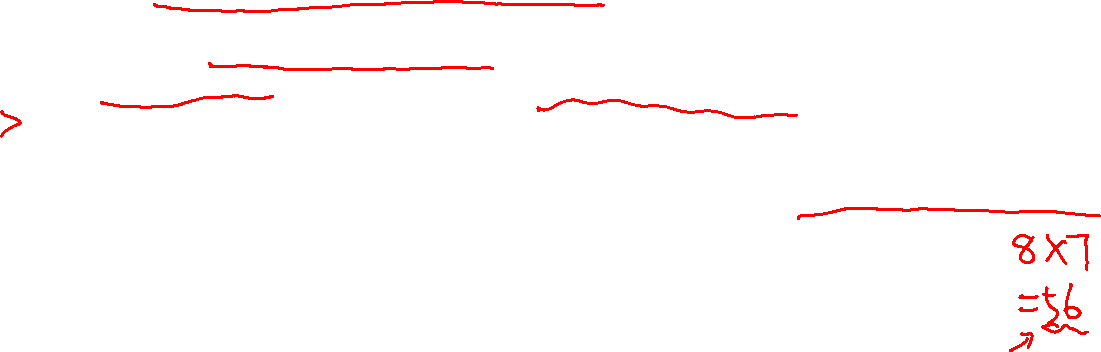 8×7
=56